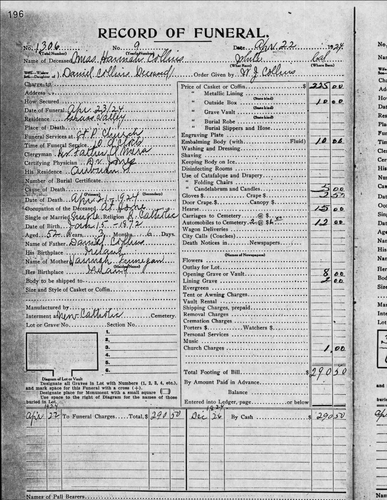 196
RECORD OF FUNERAL.
No. 1306 No. 9 Date Apr. 22 1924
Name of Deceased Miss Hannah Collins White Cal
Daniel Collins Deceased Order Given by W J Collins
Charge to
Address
How Secured
Date of Funeral Apr 23/24
Residence Grass Valley
Place of Death
Funeral Services at St P. Church
Time of Funeral Service 10 o'clock
Clergyman Rev Father O'Meara
Certifying Physician Dr Jones
His Residence Auburn St
Number of Burial Certificate
Cause of Death
Date of Death Apr 21 1924
Occupation of the Deceased At Home
Single or Married Single Religion R. Catholic
Date of Birth Jan 15 1872
Aged 52 Years 3 Months Days
Name of Father Daniel Collins
His Birthplace Ireland
Name of Mother Hannah Finnegan
Her Birthplace Ireland
Body to be shipped to
Size and Style of Casket or Coffin
Manufactured by
Interment New Catholic Cemetery
Lot or Grave No. Section No.
Diagram of Lot or Vault
Designate all Graves in Lot with Numbers (1, 2, 3, 4, etc.), and mark space for this Funeral with a cross (+).
Designate place for Monument with a small square
Use space to the right of Diagram for the names of those buried in Lot.
Price of Casket or Coffin $ 225 00
" Metallic Lining
" Outside Box 10 00
" Grave Vault
" Burial Robe
" Burial Slippers and Hose
Engraving Plate
Embalming Body (with Fluid) 10 00
Washing and Dressing
Shaving
Keeping Body on Ice
Disinfecting Rooms
Use of Catafalque and Drapery
" Folding Chairs
" Candelabrum and Candles 5 00
Gloves $ Crape $ 2 50
Door Crape
Hearse 15 00
Carriages to Cemetery @ $
Automobiles to Cemetery 2 @ $6 12 00
Wagon Deliveries
City Calls (Coaches)
Death Notices in Newspapers
Flowers
Outlay for Lot
Opening Grave or Vault 8 00
Lining Grave 2 00
Evergreen
Tent or Awning Charges
Vault Rental
Shipping Charges, prepaid
Removal Charges
Cremation Charges
Porters $ Watchers $
Personal Services
Music
Church Charges 1 00
Total Footing of Bill $ 290 50
By Amount Paid in Advance
Balance
Entered into Ledger, page or below
1924 1924
Apr 22 To Funeral Charges Total, $ 290 50 Dec 26 By Cash $ 290 50
Names of Pall Bearers